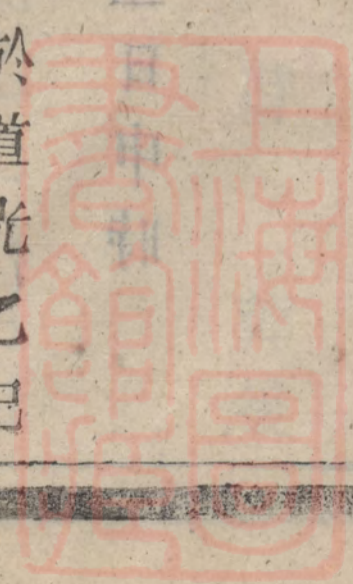 上海圖
書館藏
於道光乙巳